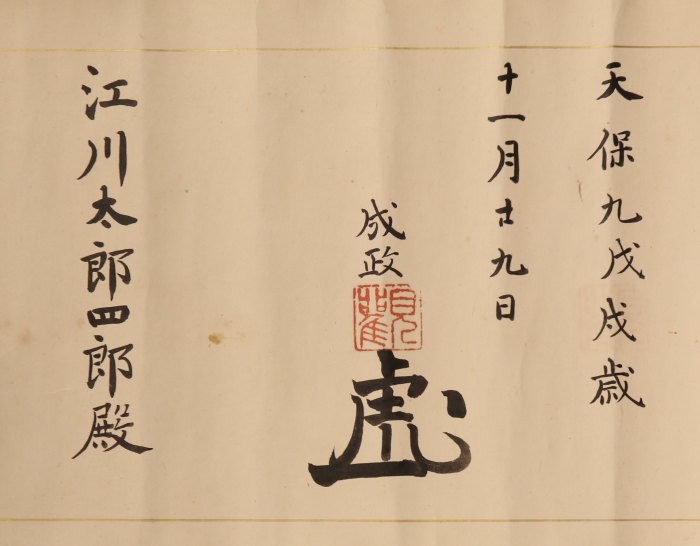 天保九戊戌歳
十一月廿九日
成政
江川太郎四郎殿